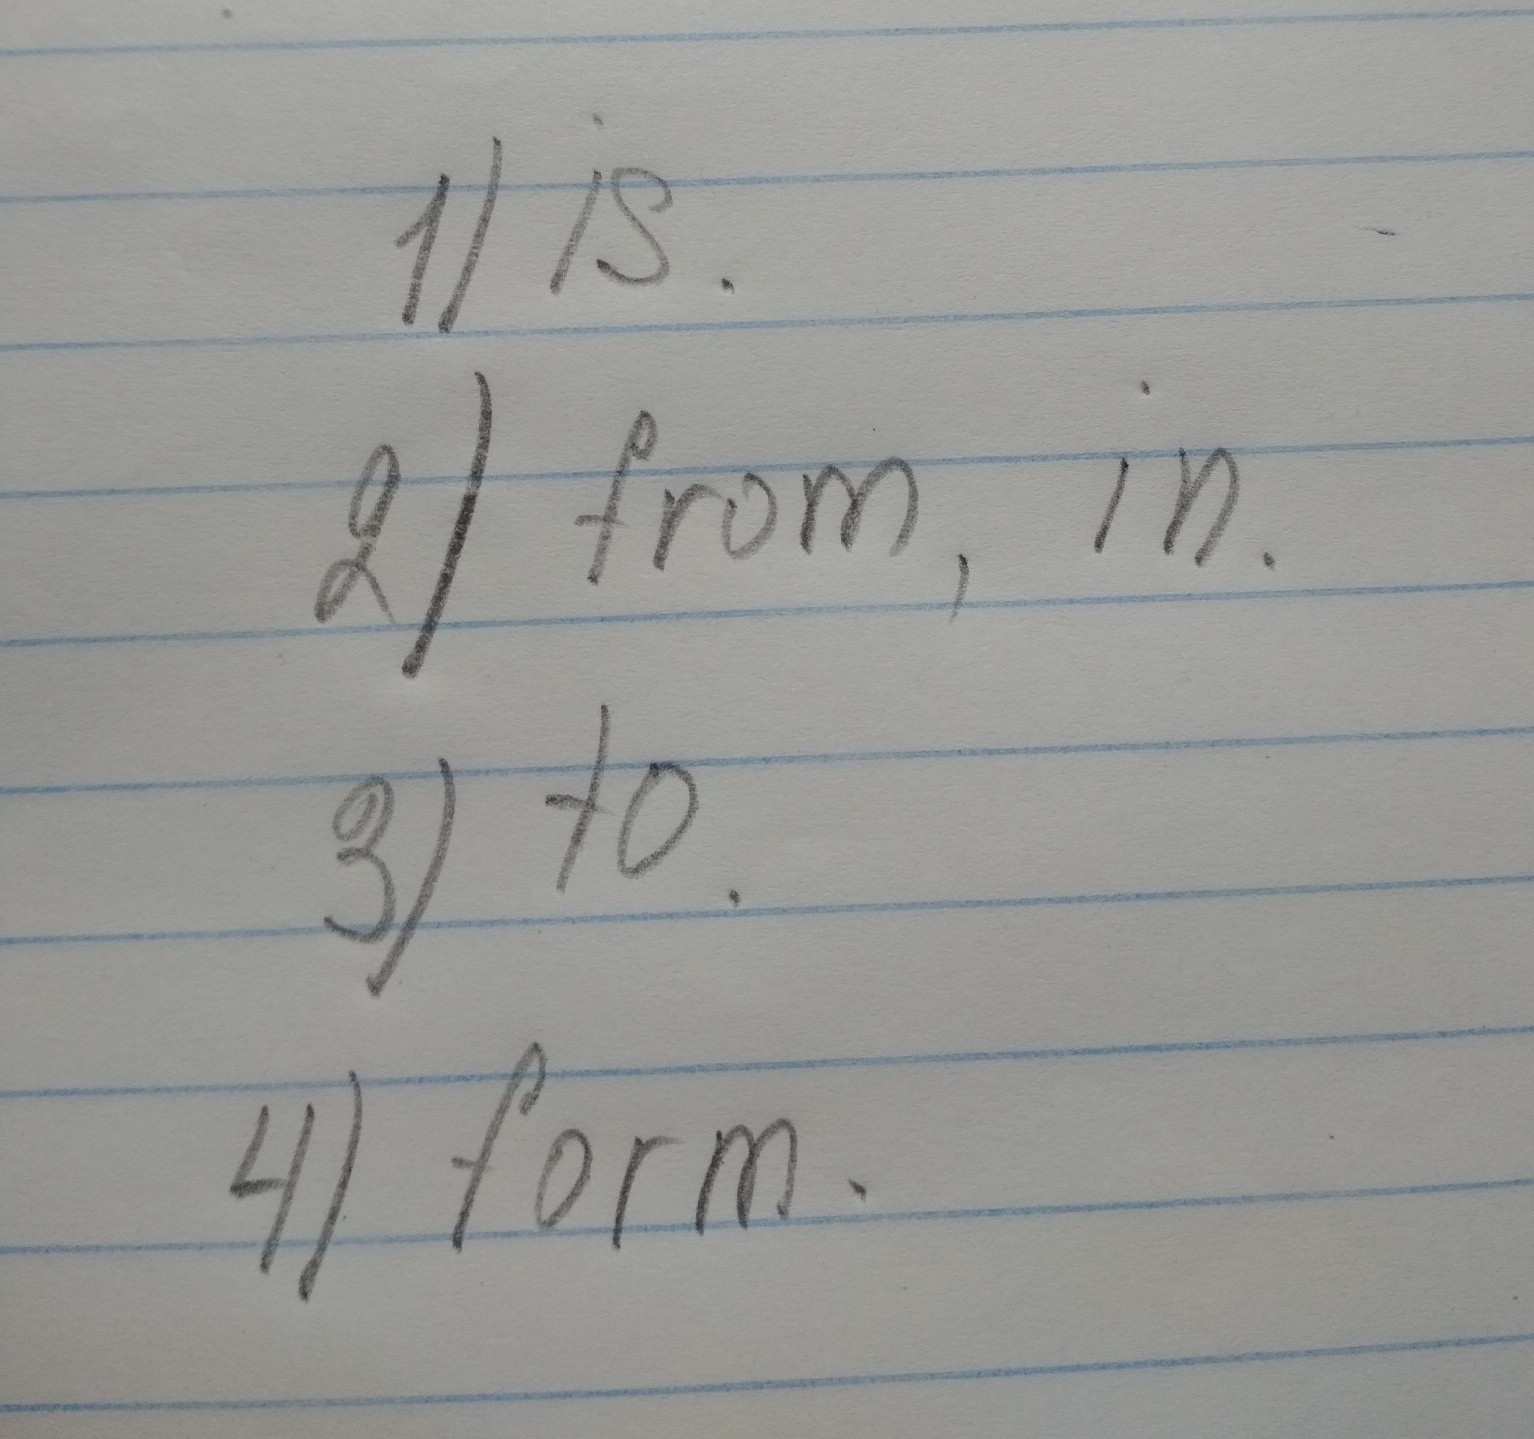 1) is.
2) from, in.
3) to.
4) form.